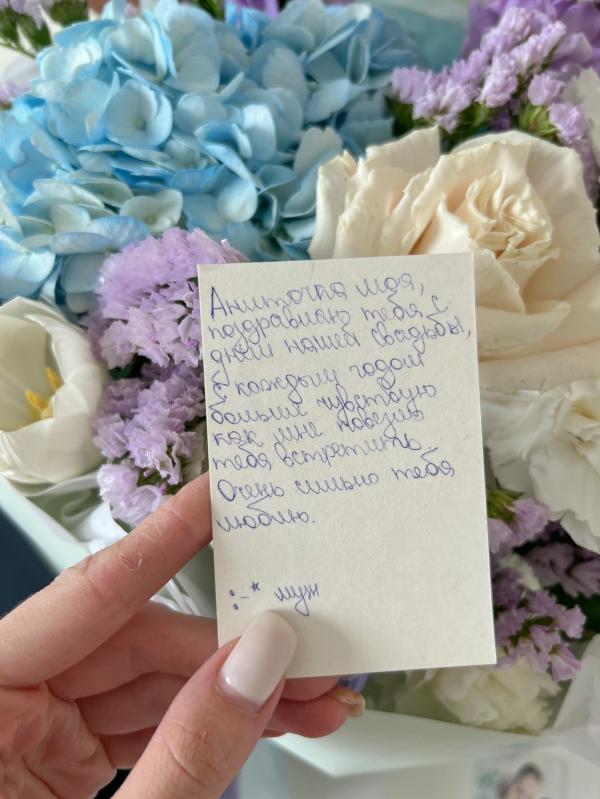 Аниточка моя,
поздравляю тебя с
днём нашей свадьбы,
С каждым годом
больше чувствую
как мне повезло
тебя встретить.
Очень сильно тебя
люблю.
:-* муж